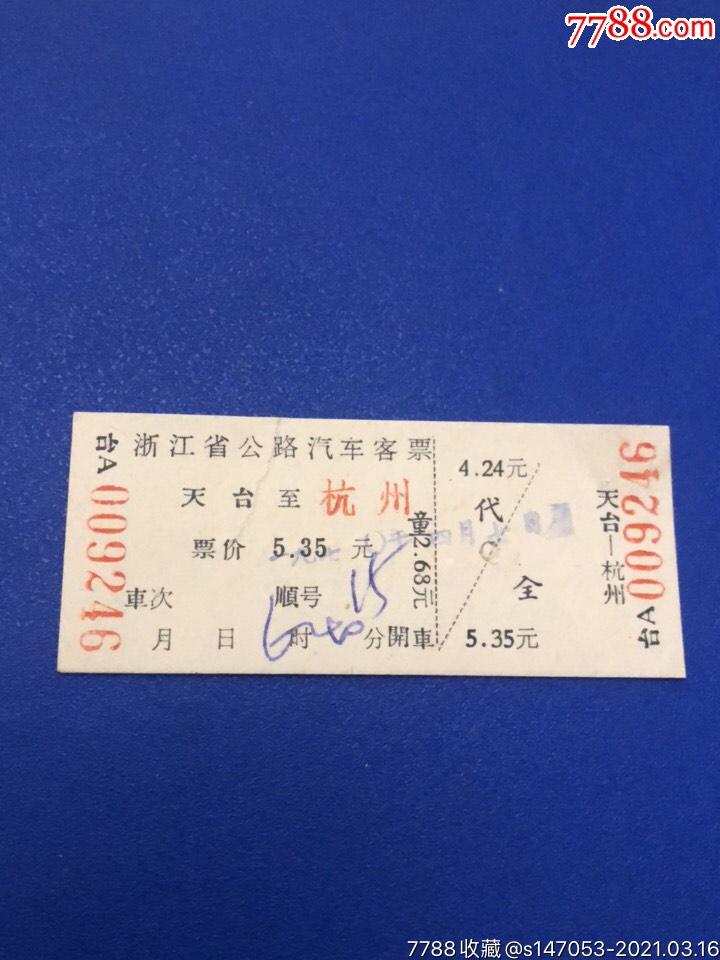 7788.com
台A 009246
浙江省公路汽车客票
天台至 杭州
票价 5.35 元
車次 順号 15
月 日 时 分開車
童2.68元
4.24元
代
全
5.35元
天台—杭州
台A 009246
7788收藏@s147053-2021.03.16